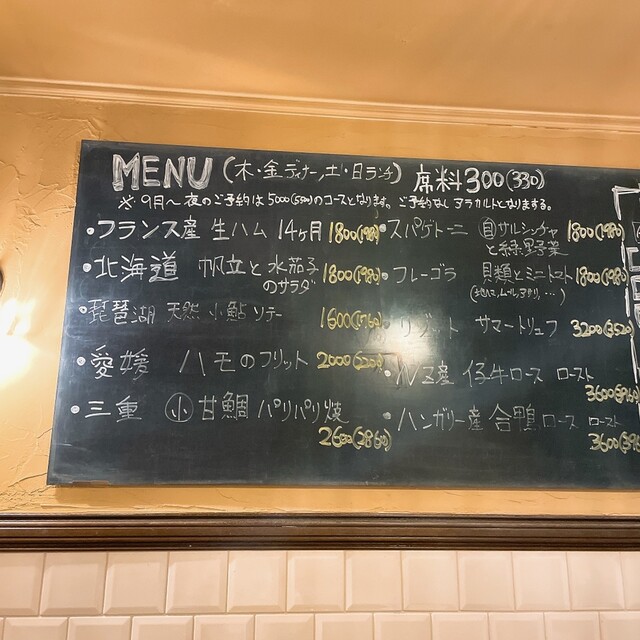 MENU (木・金ディナー,土・日ランチ) 席料300(330)
※9月〜夜のご予約は5000(5500)のコースとなります。ご予約なしアラカルトとなります。
・フランス産 生ハム 14ヶ月 1800(1980)
・北海道 帆立と水茄子のサラダ 1800(1980)
・琵琶湖 天然 小鮎ソテー 1600(1760)
・愛媛 ハモのフリット 2000(2200)
・三重 小 甘鯛 パリパリ焼 2600(2860)
・スパゲトーニ 自サルシッチャと緑野菜 1800(1980)
・フレーゴラ 貝類とミニトマト 1800(1980)
・リゾット サマートリュフ 3200(3520)
産 仔牛ロース ロースト 3600(3960)
・ハンガリー産 合鴨ロース ロースト 3600